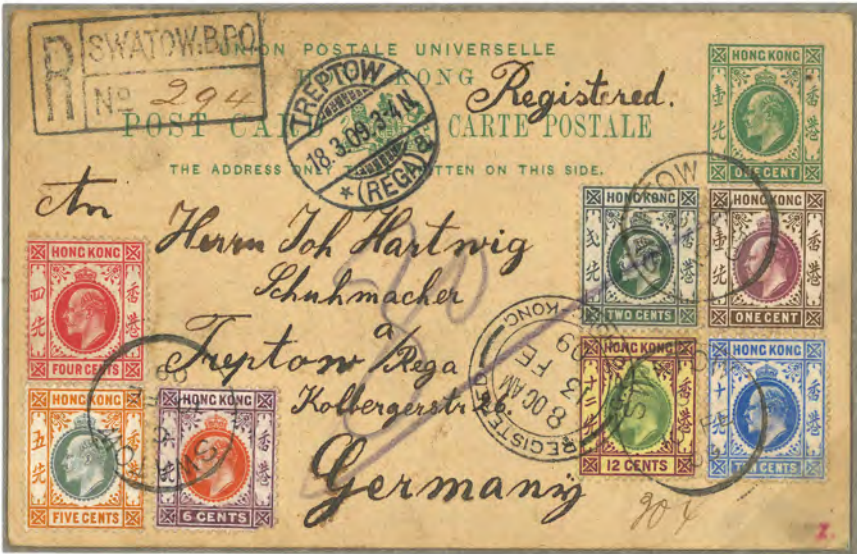 R SWATOW.B.P.O.
No 294
UNION POSTALE UNIVERSELLE
HONG KONG
POST CARD CARTE POSTALE
THE ADDRESS ONLY WRITTEN ON THIS SIDE.
Registered.
TREPTOW
18.3.09.3-4N.
* (REGA) a
HONG KONG
壹先 香港
ONE CENT
An
Herrn Joh Hartwig
Schuhmacher
a
Treptow/Rega
Kolbergerstr 26.
Germany
HONG KONG
四先 香港
FOUR CENTS
HONG KONG
五先 香港
FIVE CENTS
HONG KONG
六先 香港
6 CENTS
HONG KONG
弍先 香港
TWO CENTS
HONG KONG
壹先 香港
ONE CENT
HONG KONG
十二先 香港
12 CENTS
HONG KONG
十先 香港
TEN CENTS
REGISTERED
8 00 AM
13 FE
09
KONG
SWATOW